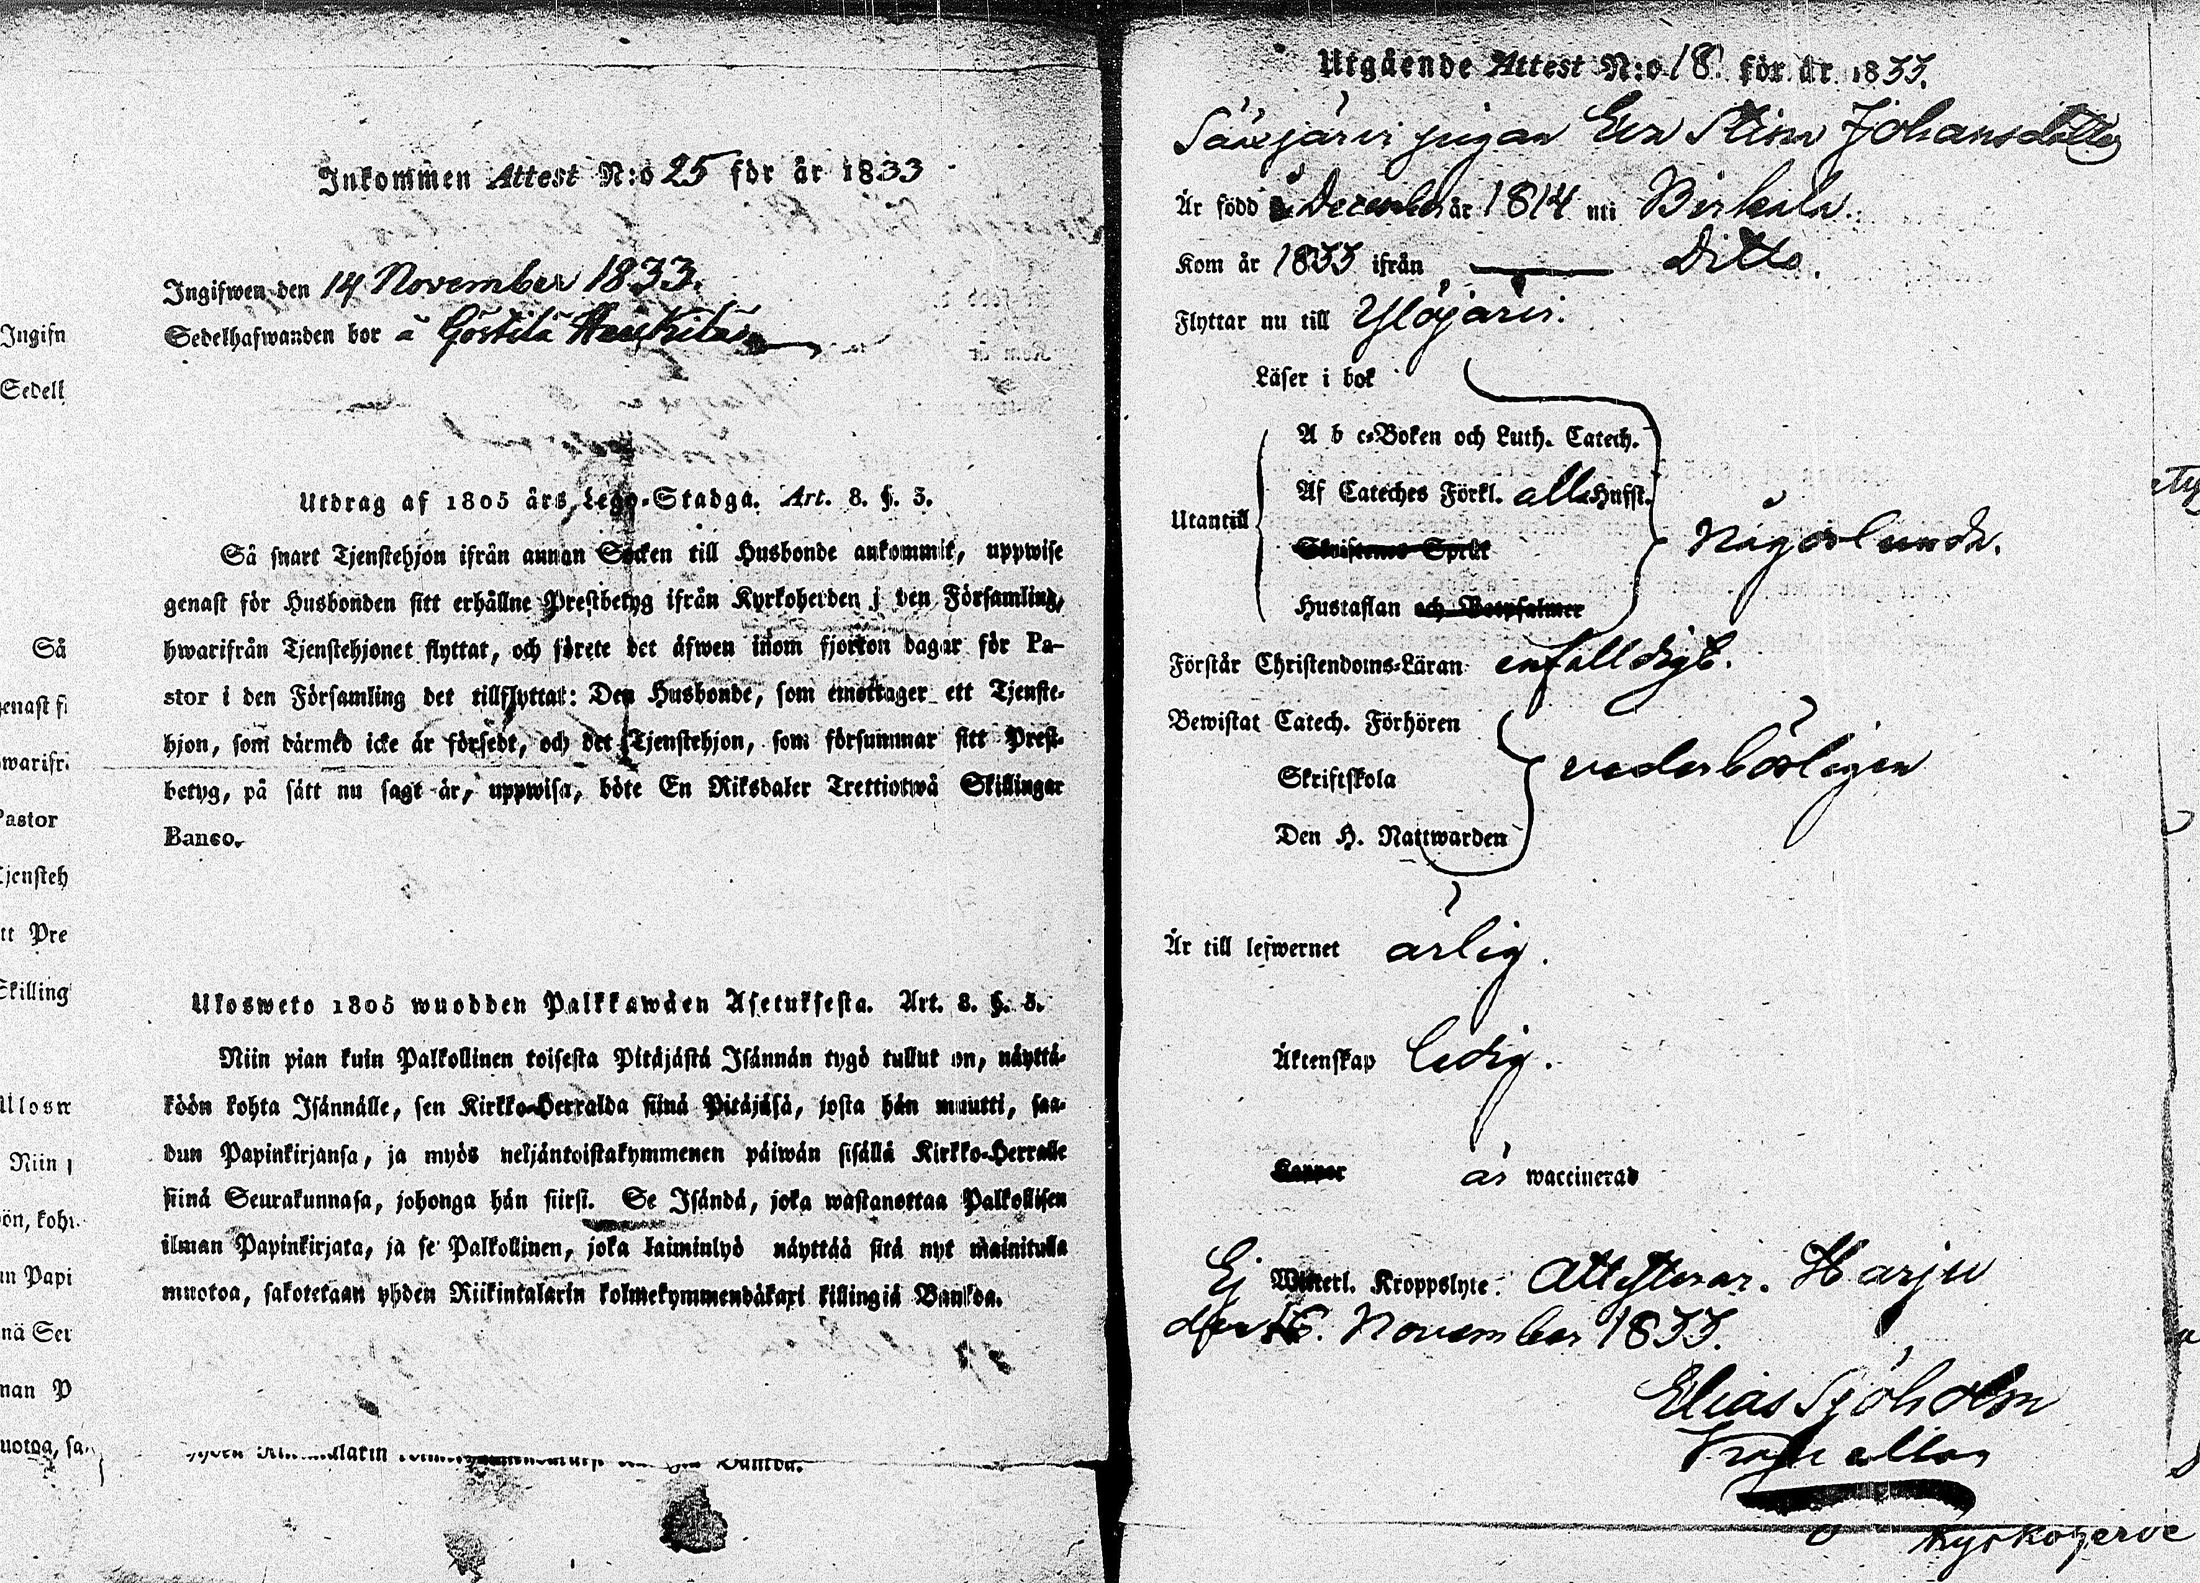 Inkommen Attest N:o 25 för år 1833
Ingifwen den 14 November 1833.
Sedelhafwanden bor å Göstilä
Utdrag af 1805 års Lego-Stadga. Art. 8. §. 3.
Så snart Tjenstehjon ifrån annan Socken till Husbonde ankommit, uppwise
genast för Husbonden sitt erhållne Prestbetyg ifrån Kyrkoherden i den Församling,
hwarifrån Tjenstehjonet flyttat, och förete det äfwen inom fjorton dagar för Pa-
stor i den Församling det tillflyttat: Den Husbonde, som emottager ett Tjenste-
hjon, som därmed icke är försedt, och det Tjenstehjon, som försummar sitt Prest-
betyg, på sätt nu sagt är, uppwisa, böte En Riksdaler Trettiotwå Skillingar
Banco.
Ulosweto 1805 wuodden Palkkawäen Asetuksesta. Art. 8. §. 3.
Niin pian kuin Palkollinen toisesta Pitäjästä Isännän tygö tullut on, näyttä-
köön kohta Isännälle, sen Kirkko-Herralda siinä Pitäjäsä, josta hän muutti, saa-
dun Papinkirjansa, ja myös neljäntoistakymmenen päiwän sisällä Kirkko-Herralle
siinä Seurakunnasa, johonga hän siirsi. Se Isändä, joka wastanottaa Palkollisen
ilman Papinkirjata, ja se Palkollinen, joka laiminlyö näyttää sitä nyt mainitulla
muotoa, sakotetaan yhden Riikintalarin kolmekymmendäkaxi killingiä Bankoa.
Ingifw
Sedell
Så
genast fi
hwarifr
Pastor
Tjensteh
tt Pre
Skilling
Ulosw
Niin
ön, koht
un Papi
nä Seu
man P
uotoa, sa
Utgående Attest N:o 18. för år 1833.
Säxjärvi pigan Eva Stina Johansdotter
Är född December år 1814 uti Birkala.
Kom år 1833 ifrån Ditto.
Flyttar nu till Ylöjärvi.
Läser i bok
A b c-Boken och Luth. Catech.
Af Cateches Förkl. alla Hufst.
Utantill
Skriftenes Språk
någorlunda.
Hustaflan och Botpsalmer
Förstår Christendoms-Läran enfalldigt.
Bewistat Catech. Förhören
Skriftskola
vederbörligen
Den H. Nattwarden
Är till lefwernet ärlig.
Äktenskap ledig.
Koppor är waccinerad
Ej Witterl. Kroppslyte. Attesterar. Harju
den November 1833.
Elias Sjöholm
Kyrkoherde